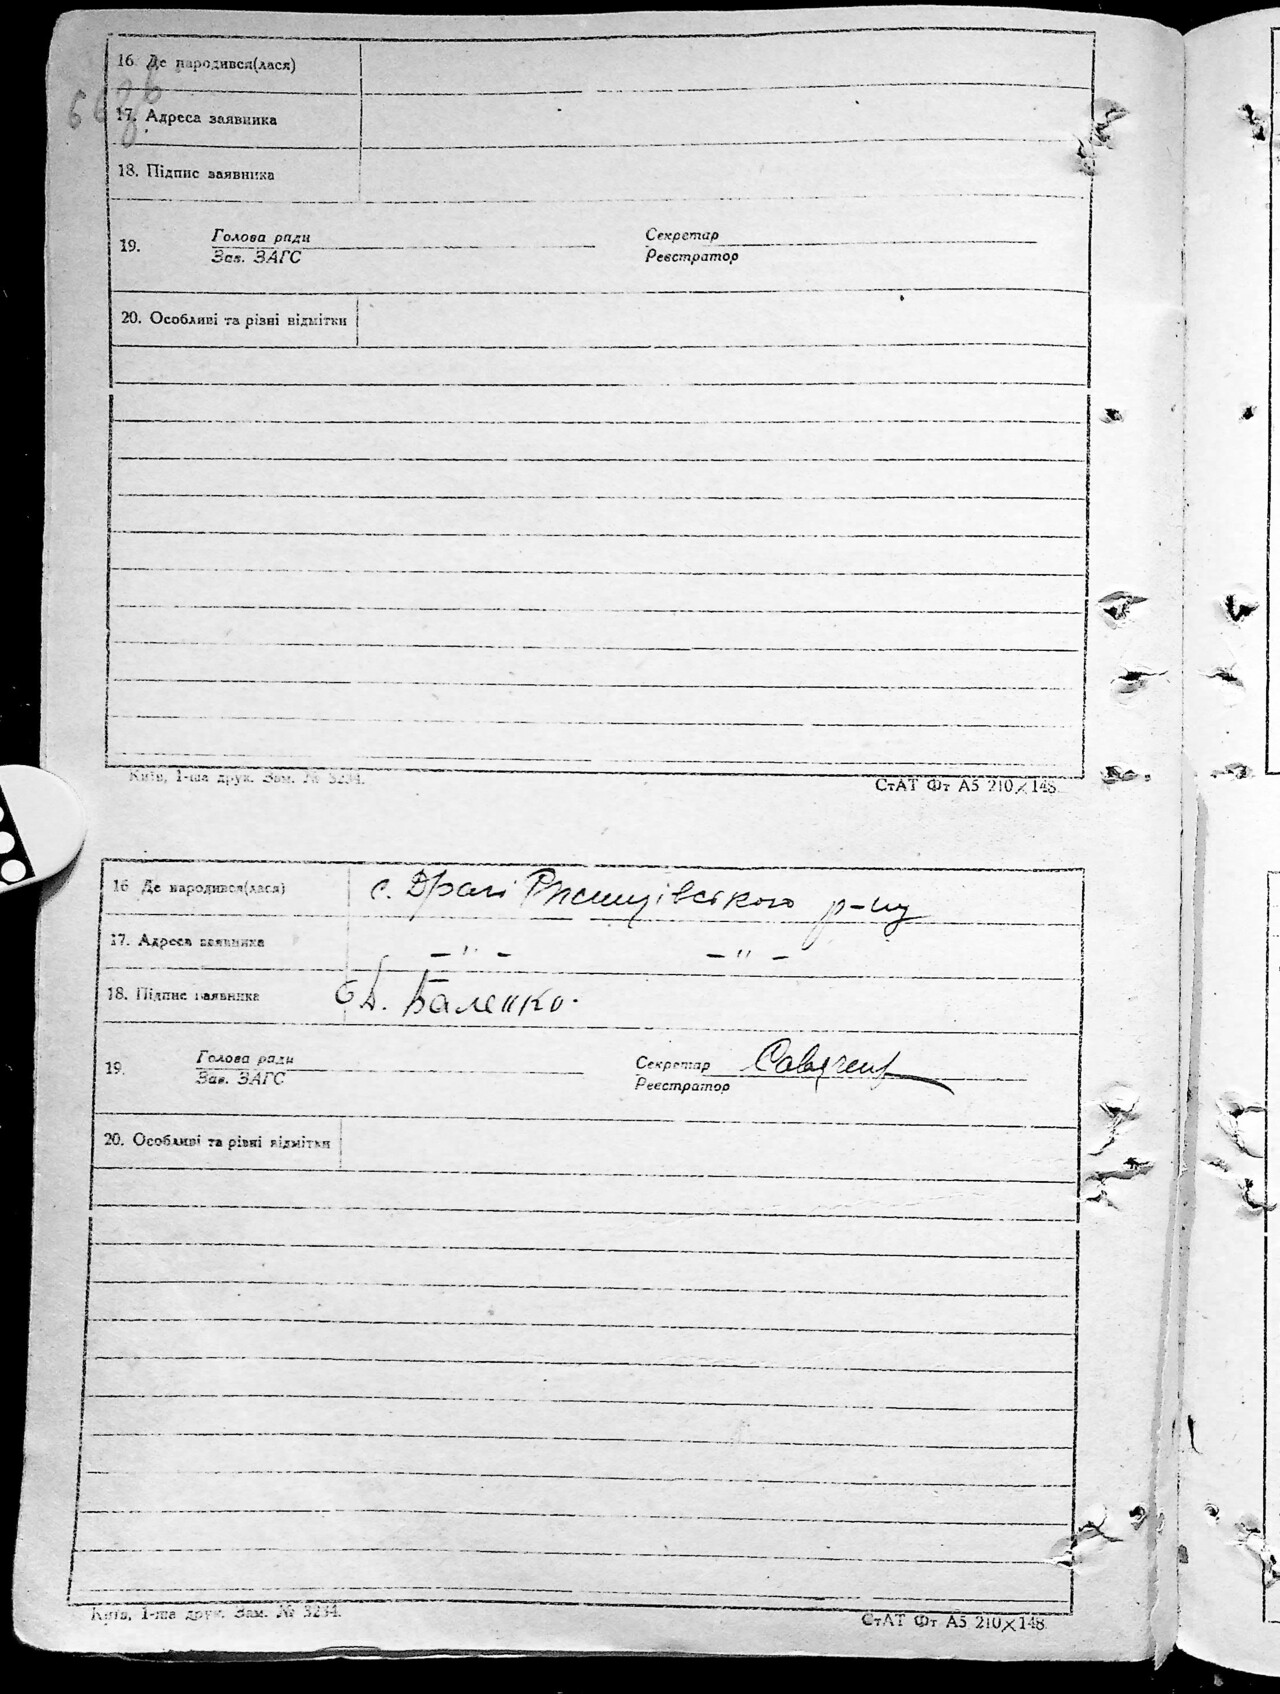 16. Де народився(лася)
17. Адреса заявника
18. Підпис заявника
19. Голова ради Секретар
Зав. ЗАГС Реєстратор
20. Особливі та різні відмітки
Київ, 1-ша друк. Зам. № 3234. СтАТ Фт А5 210×148
16 Де народився(лася) с. Драгі Ржищівського р-ну
17. Адреса заявника –"– –"–
18. Підпис заявника Баленко.
19. Голова ради Секретар
Зав. ЗАГС Реєстратор
20. Особливі та різні відмітки
Київ, 1-ша друк. Зам. № 3234. СтАТ Фт А5 210×148